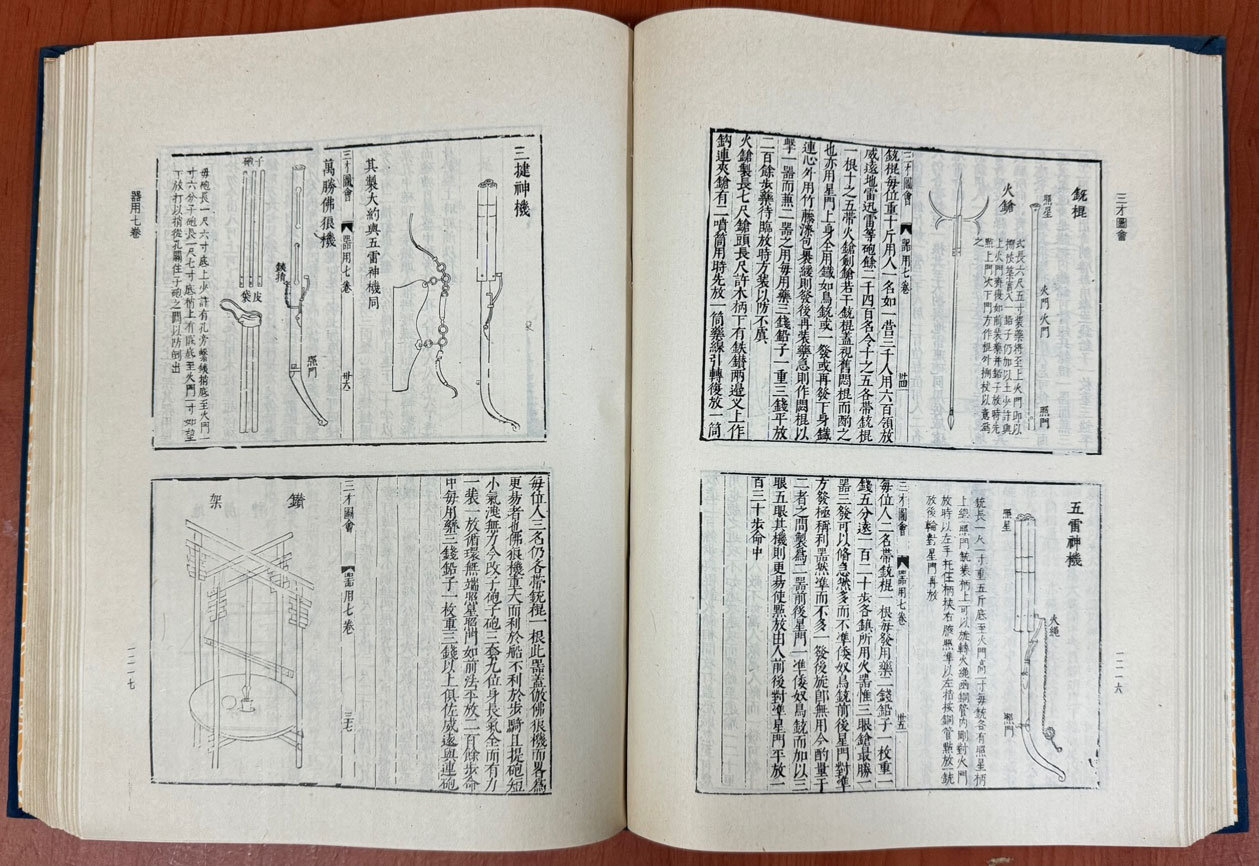 三才圖會
銃棍
照星
火門火門
照門
火鎗
式長六尺五寸裝藥將至上火門即以
搠杖築實入一鉛子仍加以土少許與
上火門齊後如前裝藥并鉛子放時先
點上門火下門方作棍外搠杖以意為
之
三才圖會 器用七卷 卅四
銃棍每位重十斤用人一名如一營三千人用六百領放
威遠地雷迅雷等砲餘二千四百名今十之五各帶銃棍
一根十之五帶火鎗劍鎗若干銃棍蓋視舊悶棍而酌之
也亦用星門上身全用鐵如鳥銃或一發或再發下身鐵
連心外用竹藤漆包裹緩則發後再裝藥急則作悶棍以
擊一器而兼二器之用每用藥三錢鉛子一重三錢平放
二百餘步藥待臨放時方裝以防不虞
火鎗製長七尺鎗頭長尺許木柄下有鉄鑽兩邊叉上作
鈎連夾鎗有二噴筒用時先放一筒藥線引轉後放一筒
五雷神機
照星
火繩
照門
銃長一尺二寸重五斤底至火門高一寸每銃各有照星柄
上總一照門銃裝柄上可以旋轉火繩函銅管內剛對火門
放時以左手托住柄挾右腋照準以左指挨銅管點放一銃
放後輪對星門再放
三才圖會 器用七卷 卅五
每位人二名帶銃棍一根每發用藥二錢鉛子一枚重一
錢五分遠一百二十步各鎮所用火器惟三眼鎗最勝一
器三發可以備急然多而不準倭奴鳥銃前後星門對準
方發極稱利器然準而不多一發後旋即無用今酌量于
二者之間製爲二器前後星門一準倭奴鳥銃而加以三
眼五眼其機則更易使點放由人前後對準星門平放一
百二十步命中
一二一六
三捷神機
其製大約與五雷神機同
三才圖會 器用七卷 卅六
萬勝佛狼機
子砲
皮袋
鉄捎
照門
每砲長一尺六寸底上少許有孔旁螺綫捎底至火門一
寸六分子砲長一尺七寸底捎上有底底至火門一寸如裝
下放打以捎從孔關住子砲之門以防倒出
器用七卷
每位人三名仍各帶銃棍一根此器蓋倣佛狼機而畧爲
更易者也佛狼機重大而利於船不利於步騎且提砲短
小氣洩無力今改子砲子砲三套九位身長氣全而有力
一裝一放循環無端照星照門如前法平放二百餘步命
中每用藥三錢鉛子一枚重三錢以上俱佐威遠與連砲
三才圖會 器用七卷 三七
鑽架
一二一七